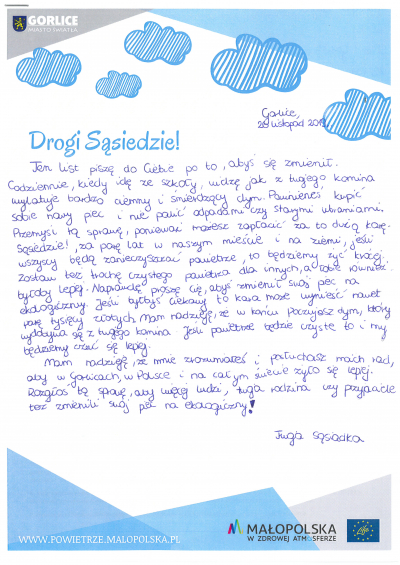 GORLICE
MIASTO ŚWIATŁA
Gorlice,
listopad
Drogi Sąsiedzie!
Ten list piszę do Ciebie po to, abyś się zmienił.
Codziennie, kiedy idę ze szkoły, widzę jak z twojego komina
wylatuje bardzo ciemny i śmierdzący dym. Powinieneś kupić
sobie nowy piec i nie palić odpadami czy starymi ubraniami.
Przemyśl tą sprawę, ponieważ możesz zapłacić za to dużą karę.
Sąsiedzie!, za parę lat w naszym mieście i na ziemi, jeśli
wszyscy będą zanieczyszczać powietrze, to będziemy żyć krócej.
Zostaw też trochę czystego powietrza dla innych, a tobie również
byłoby lepiej. Naprawdę proszę cię, abyś zmienił swój piec na
ekologiczny. Jeśli byłbyś ciekawy to kara może wynieść nawet
parę tysięcy złotych. Mam nadzieję, że w końcu poczujesz dym, który
wydobywa się z twojego komina. Jeśli powietrze będzie czyste to i my
będziemy czuć się lepiej.
Mam nadzieję, że mnie zrozumiałeś i posłuchasz moich rad,
aby w Gorlicach, w Polsce i na całym świecie żyło się lepiej.
Rozgłoś tą sprawę, aby więcej ludzi, twoja rodzina czy przyjaciele
też zmienili swój piec na ekologiczny!
Twoja sąsiadka
WWW.POWIETRZE.MALOPOLSKA.PL
MAŁOPOLSKA
W ZDROWEJ ATMOSFERZE